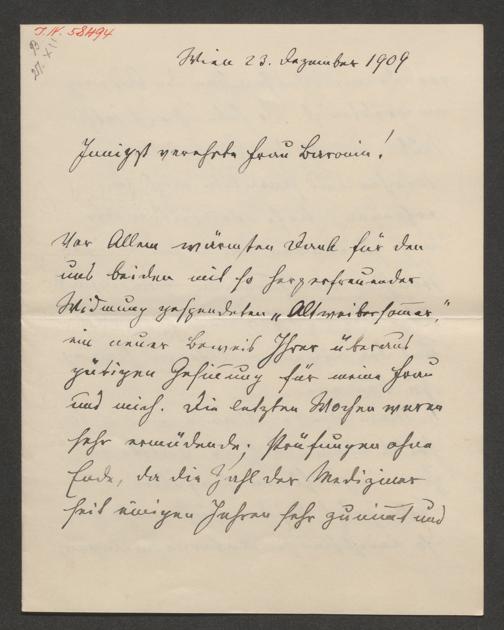 J.N. 58494
Wien 23. Dezember 1909
Innigst verehrte Frau Baronin!
Vor Allem wärmsten Dank für den
uns beiden mit so herzerfreuender
Widmung gespendeten „Altweibersom̅er,"
ein neuer Beweis Ihrer überaus
gütigen Gesin̅ung für meine Frau
und mich. Die letzten Wochen waren
sehr ermüdende; Prüfungen ohne
Ende, da die Zahl der Mediziner
seit einigen Jahren sehr zunim̅t und